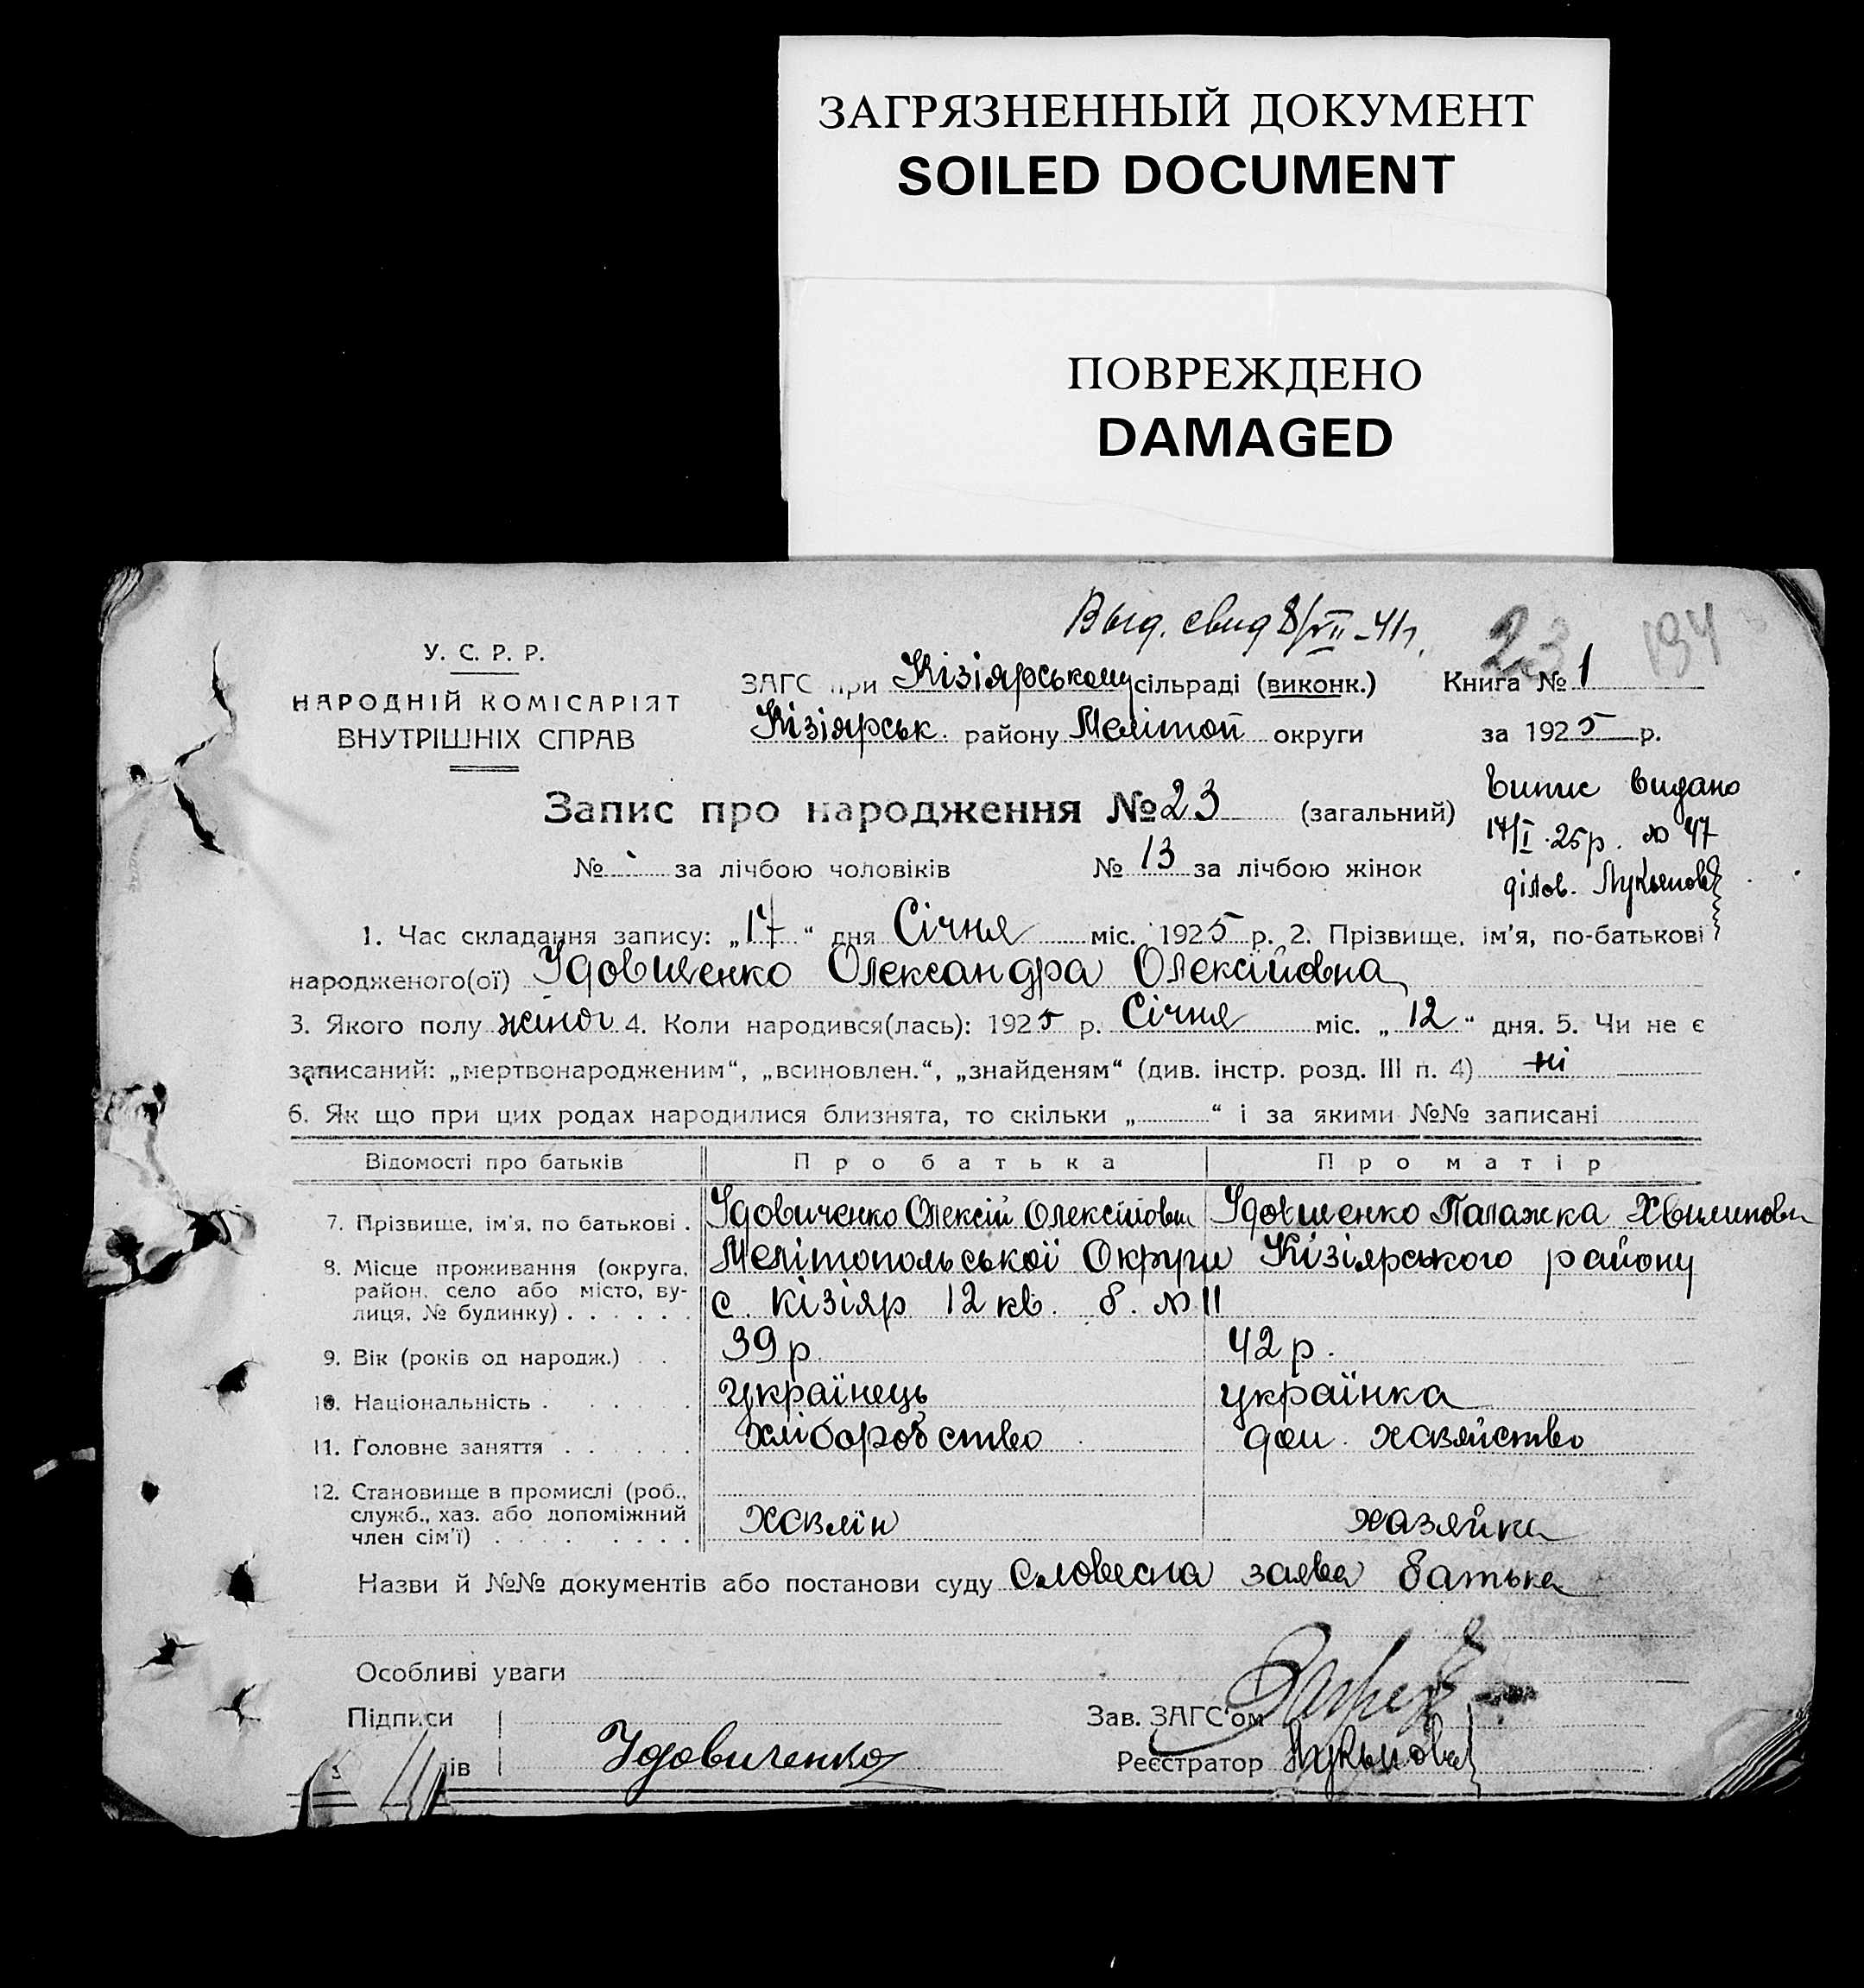 ЗАГРЯЗНЕННЫЙ ДОКУМЕНТ
SOILED DOCUMENT
ПОВРЕЖДЕНО
DAMAGED
Выд. свид 8/VII-41г.
23 194
У. С. Р. Р.
НАРОДНІЙ КОМІСАРІЯТ
ВНУТРІШНІХ СПРАВ
ЗАГС при Кізіярському сільраді (виконк.) Книга № 1
Кізіярськ. району Меліtoп округи за 1925 р.
Запис про народження № 23 (загальний)
Випис видано
17/I 25р. № 47
ділов. Лукьянов
№ за лічбою чоловіків № 13 за лічбою жінок
1. Час складання запису: „17“ дня Січня міс. 1925 р. 2. Прізвище, ім'я, по-батькові
народженого(ої) Удовиченко Олександра Олексіївна
3. Якого полу жіноч 4. Коли народився(лась): 1925 р. Січня міс. „12“ дня. 5. Чи не є
записаний: „мертвонародженим“, „всиновлен.“, „знайденям“ (див. інстр. розд. III п. 4) ні
6. Як що при цих родах народилися близнята, то скільки „ “ і за якими №№ записані
Відомості про батьків Про батька Про матір
7. Прізвище, ім'я, по батькові . Удовиченко Олексій Олексійович Удовиченко Палажка Хвилипові
8. Місце проживання (округа, район, село або місто, вулиця, № будинку) . . . . . . Мелітопольської Округи Кізіярського району
с. Кізіяр 12 кв. б. № 11
9. Вік (років од народж.) . . 39 р. 42 р.
10. Національність . . . . . . українець українка
11. Головне заняття . . . . . . хліборобство дом. хазяйство
12. Становище в промислі (роб., служб., хаз. або допоміжний член сім'ї) . . . . . . . . хазяїн хазяйка
Назви й №№ документів або постанови суду словесна заява батька
Особливі уваги
Підписи Зав. ЗАГС'ом
ів Удовиченко Реєстратор Лукьянов